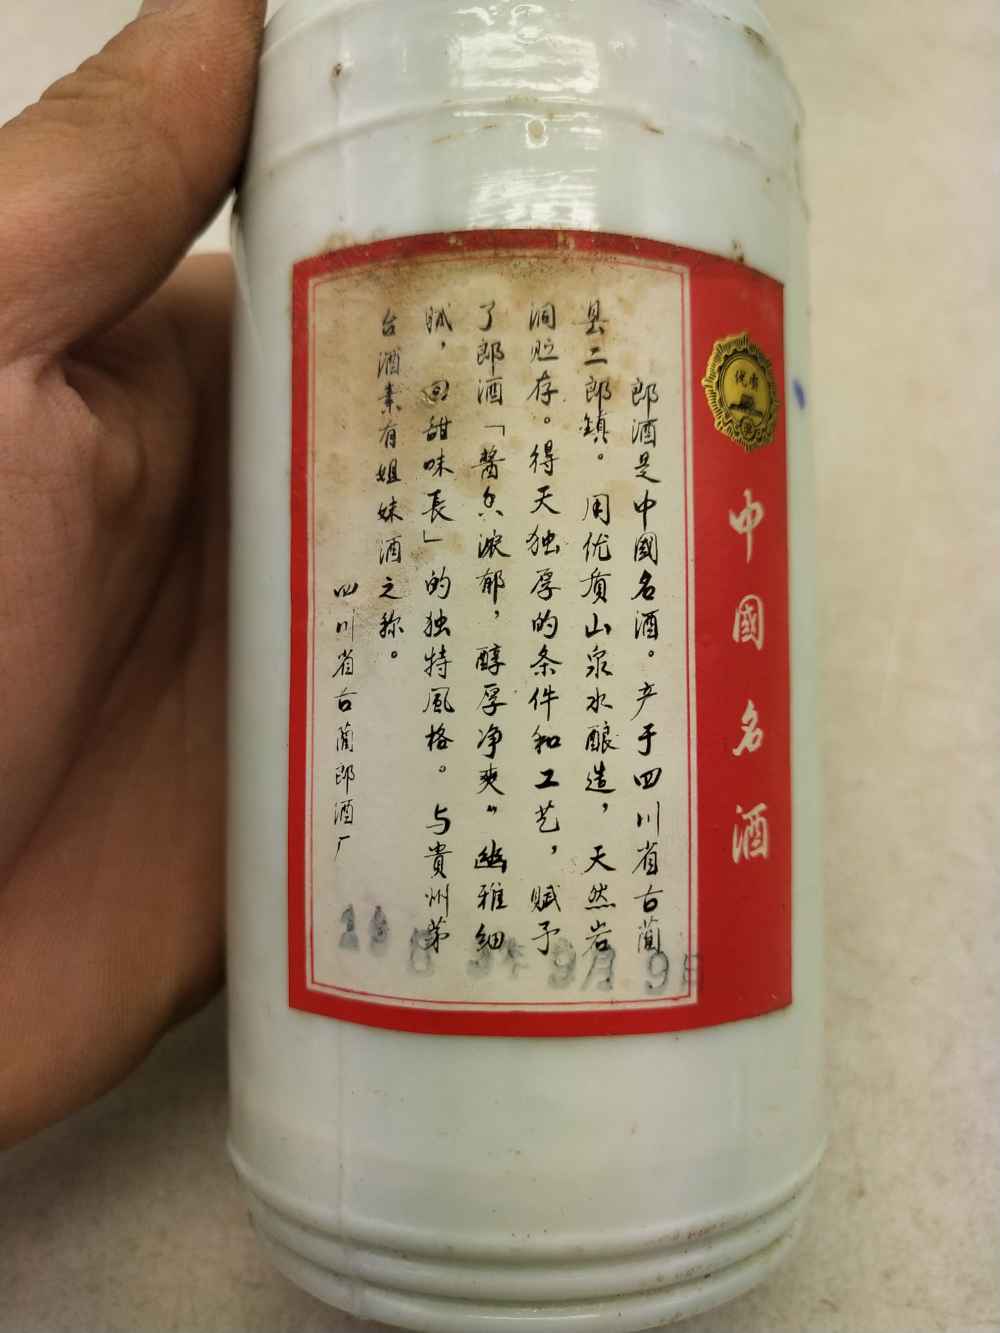 优质
中國名酒
郎酒是中國名酒。产于四川省古藺
县二郎鎮。用优质山泉水酿造，天然岩
洞贮存。得天独厚的条件和工艺，赋予
了郎酒「醬香浓郁，醇厚净爽，幽雅细
腻，回甜味長」的独特風格。与貴州茅
台酒素有姐妹酒之称。
四川省古藺郎酒厂
9月9日